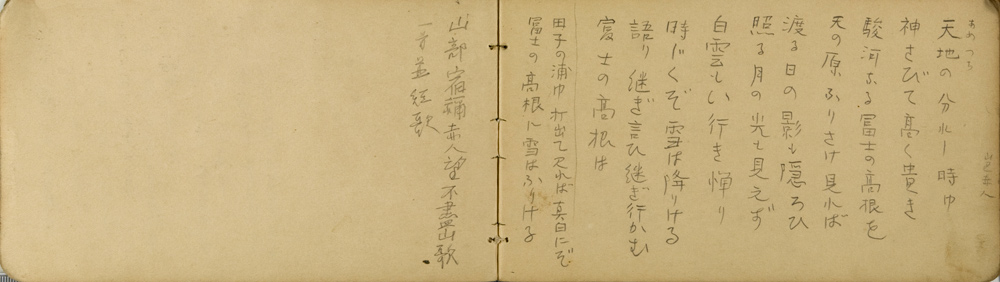 あめつち
天地の分れし時ゆ
山辺赤人
神さびて高く貴き
駿河なる冨士の高根を
天の原ふりさけ見れば
渡る日の影も隠ろひ
照る月の光も見えず
白雲もい行き憚り
時じくぞ雪は降りける
語り継ぎ言ひ継ぎ行かむ
冨士の高根は
田子の浦ゆ打出て見れば真白にぞ
冨士の高根に雪はふりける
山部宿禰赤人望不盡山歌
一首並短歌